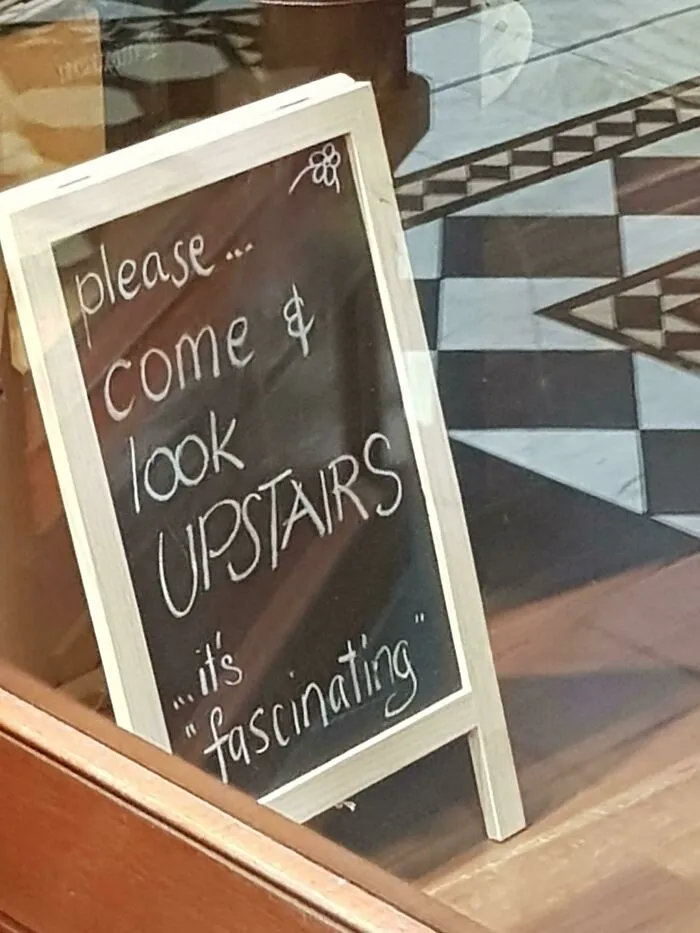 please...
come &
look
UPSTAIRS
...it's
"fascinating"